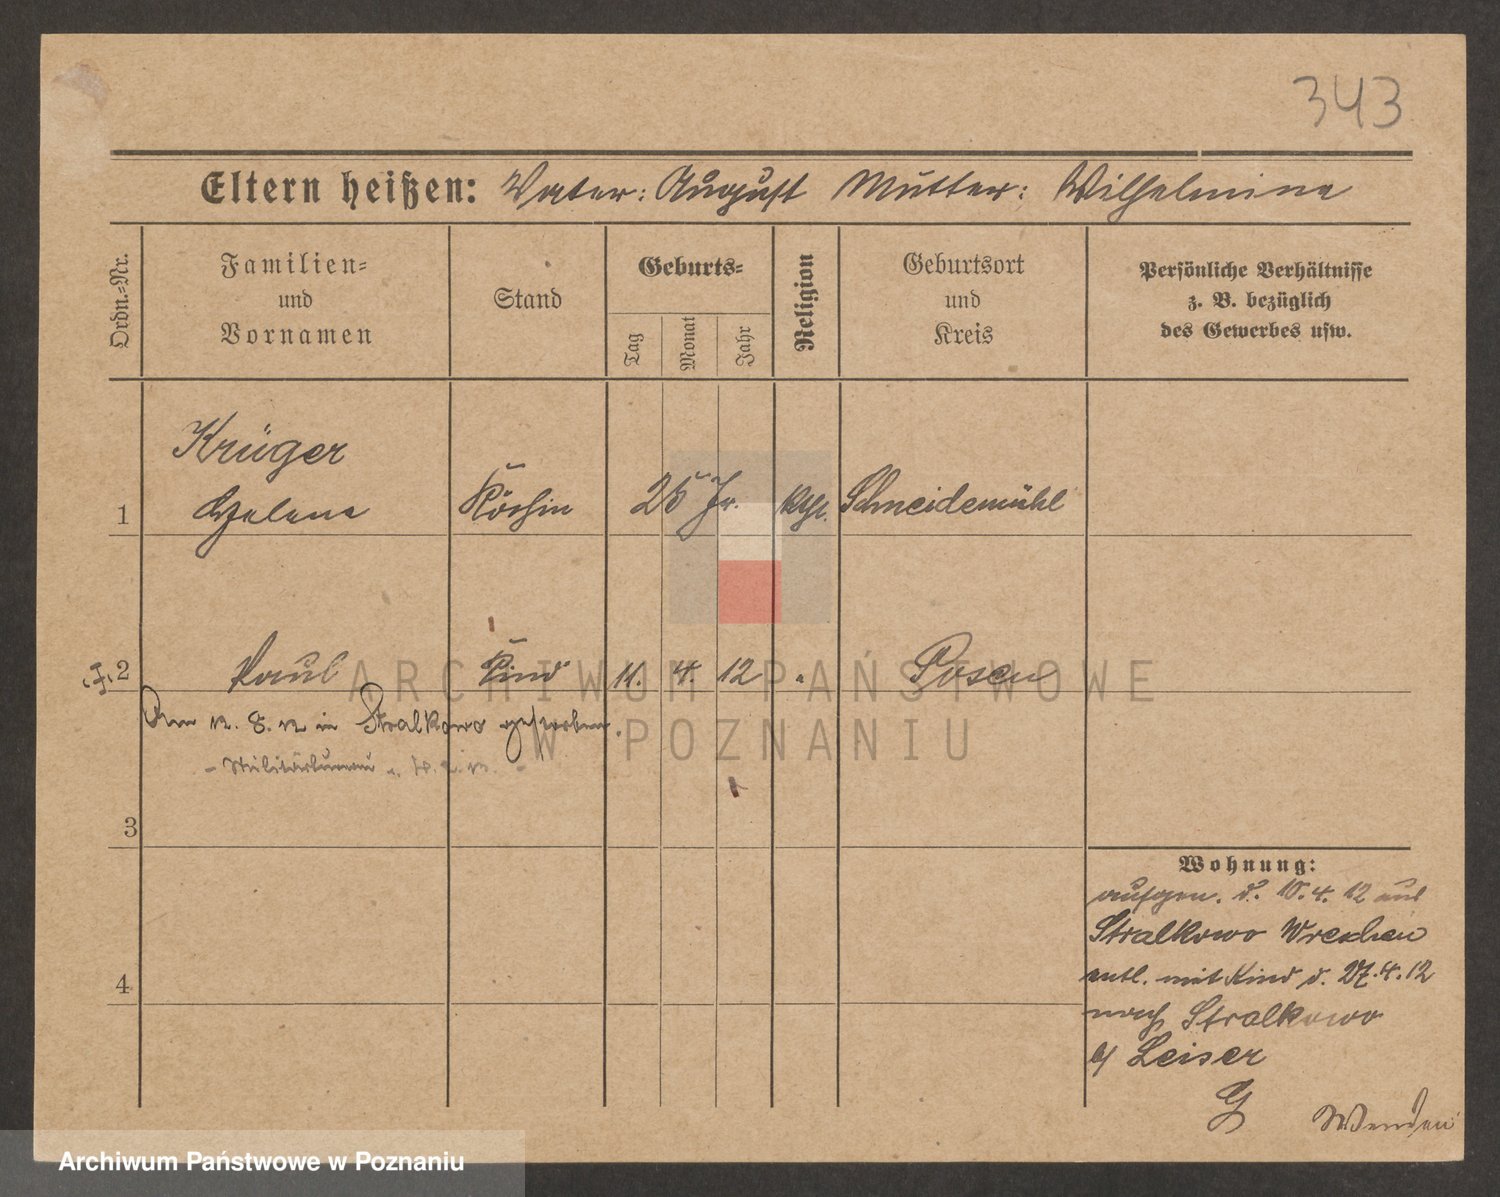 343
Eltern heißen: Vater: August Mutter: Wilhelmine
Ordn.-Nr.
Familien-
und
Vornamen
Stand
Geburts-
Tag
Monat
Jahr
Religion
Geburtsort
und
Kreis
Persönliche Verhältnisse
z. B. bezüglich
des Gewerbes usw.
Krüger
1 Helene Köchin 25 Jr. kth. Schneidemühl
2 Paul Kind 11. 4. 12 " Posen
Am 12. 8. 12 in Stralkowo gestorben.
- Militärbureau
3
4
Wohnung:
aufgen. d. 10. 4. 12 aus
Stralkowo Wreschen
entl. mit Kind d. 27. 4. 12
nach Stralkowo
b/ Leiser
ARCHIWUM PAŃSTWOWE
W POZNANIU
Archiwum Państwowe w Poznaniu